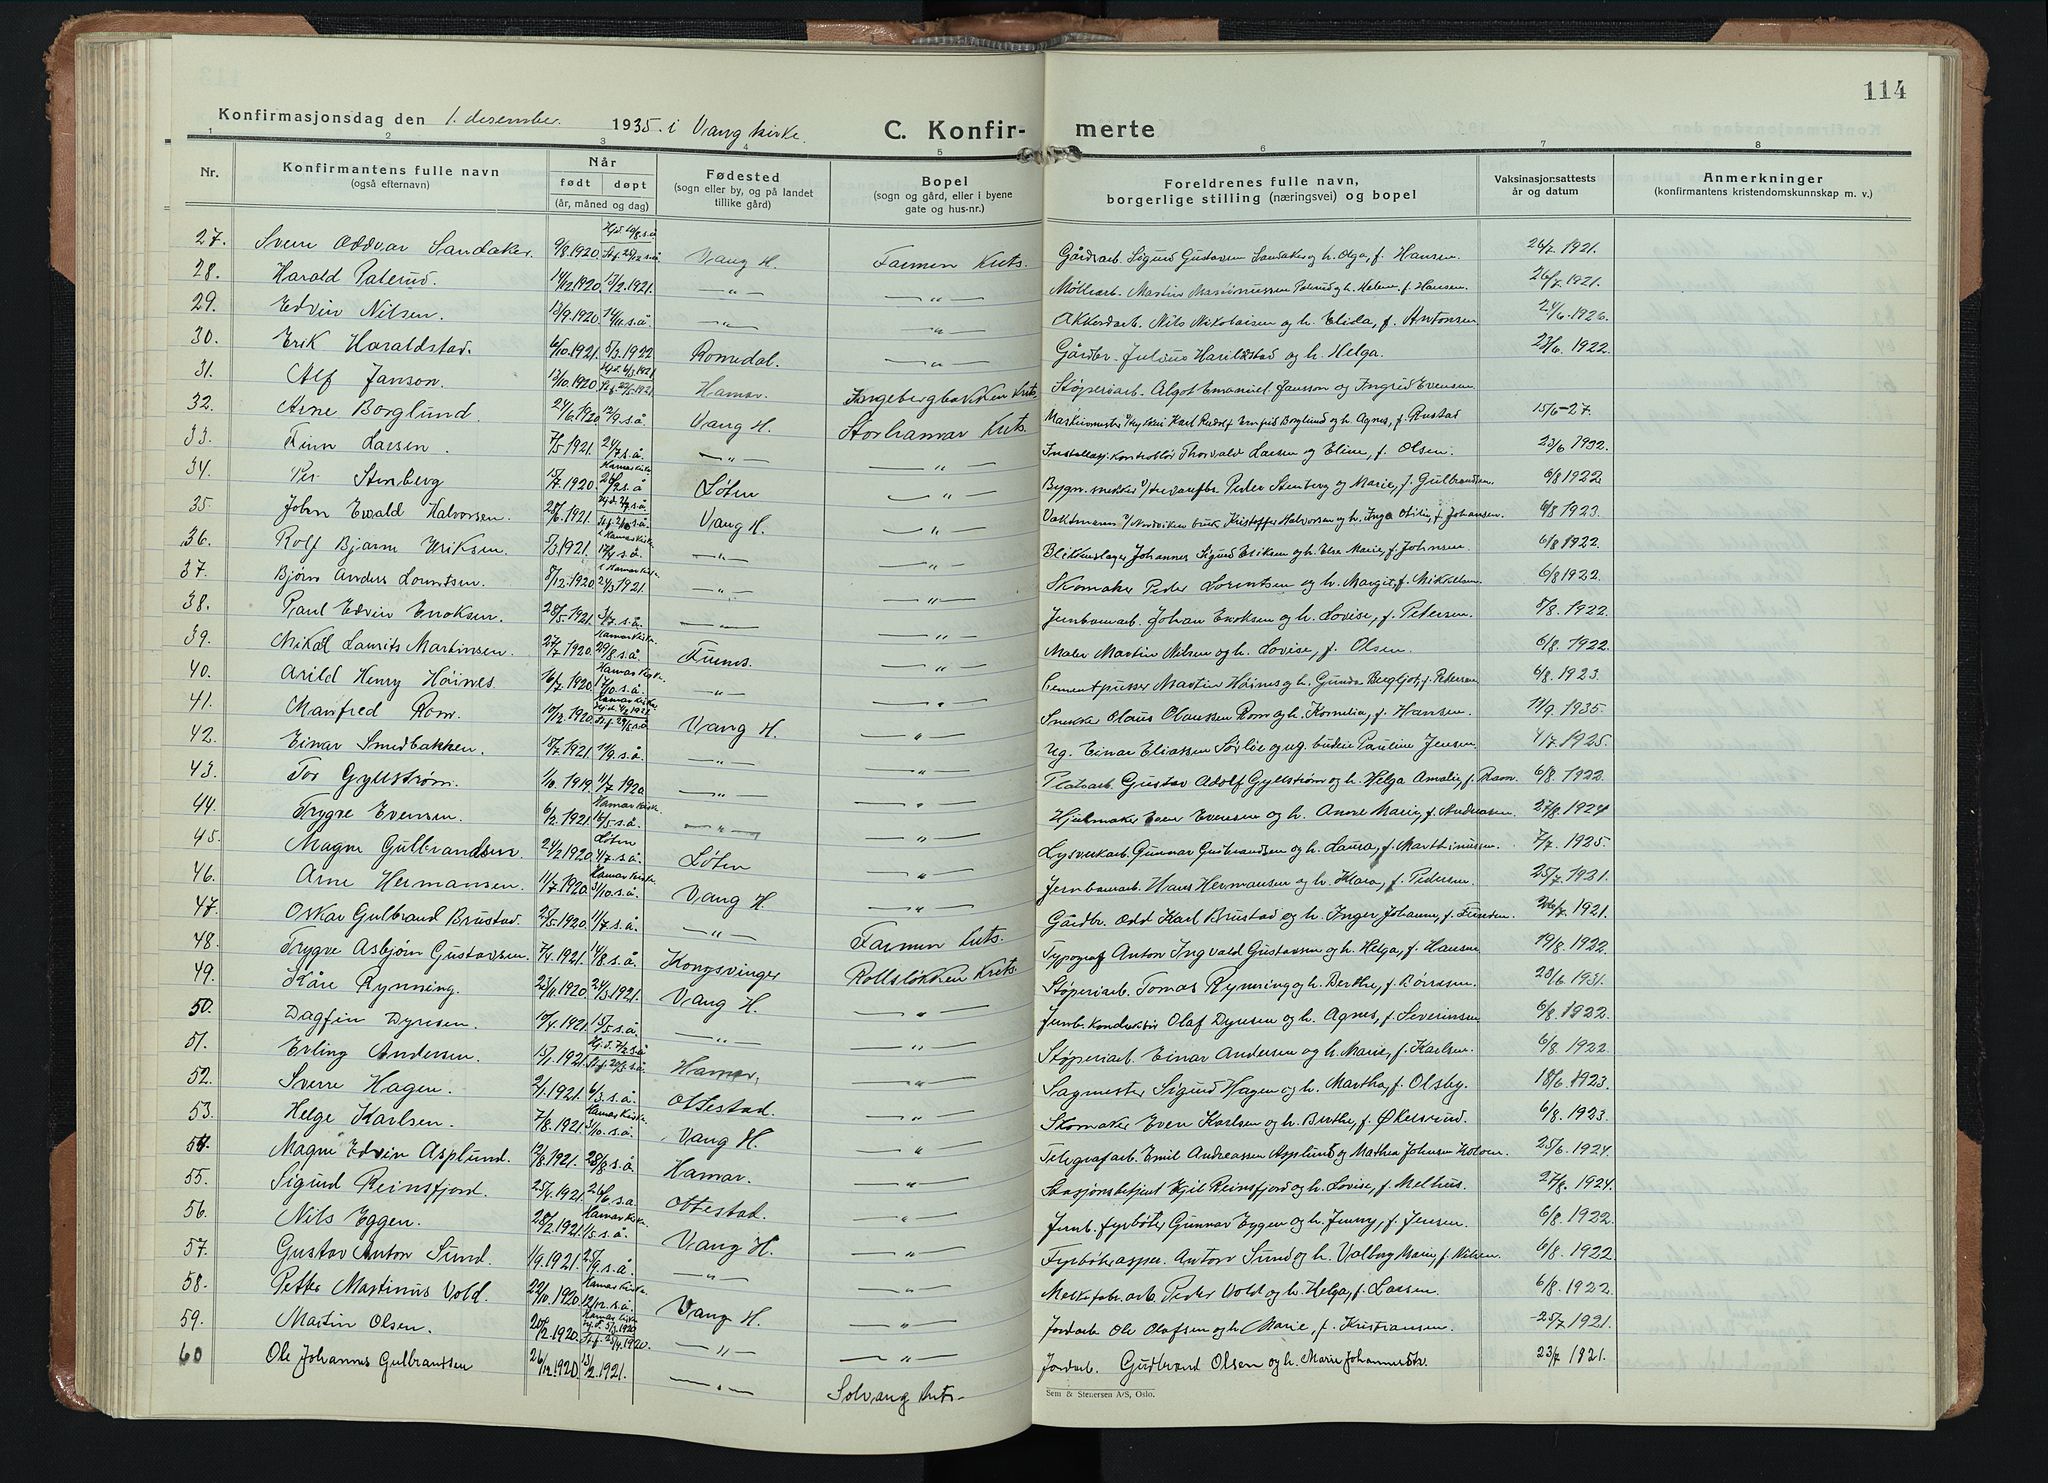 114
Konfirmasjonsdag den 1. desember 1935 i Vang kirke. C. Konfir- merte
1 2 3 4 5 6 7 8
Nr. Konfirmantens fulle navn (også efternavn) Når født døpt (år, måned og dag) Fødested (sogn eller by, og på landet tillike gård) Bopel (sogn og gård, eller i byene gate og hus-nr.) Foreldrenes fulle navn, borgerlige stilling (næringsvei) og bopel Vaksinasjonsattests år og datum Anmerkninger (konfirmantens kristendomskunnskap m. v.)
27. Svein Oddvar Sandaker. 9/8.1920. Hjd. 10/8.s.å. Vang H. Farmen krets. Gårdsarb. Sigurd Gustavsen Sandaker og h. Olga, f. Hansen. 26/7.1921.
28. Harald Paterud. 14/12.1920. 13/2.1921. —"— —"— Møllearb. Martin Paterud og h. Helene f. Hansen. 26/7.1921.
29. Edvin Nilsen. 13/9.1920. 14/11.s.å. —"— —"— Akkordarb. Nils Nikolaisen og h. Elida, f. Antonsen 24/6.1926.
30. Erik Haraldstad. 6/10.1921. 5/3.1922 Romedal. —"— Gårdbr. Julius Haraldstad og h. Helga. 23/6.1922.
31. Alf Janson. 13/10.1920 Hamar. Ingebergbakken krets. Støperiarb. Algot Emanuel Jansson og Ingrid Evensen
32. Arne Borglund. 24/6.1920. 12/9.s.å. Vang H. Storhamar krets. Karl Rudolf Borglund og h. Agnes, f. Rustad 15/6-27.
33. Finn Larsen. 7/5.1921. 24/7.s.å. —"— —"— Installasj. kontrollør Thorvald Larsen og Eline, f. Olsen. 23/6 1932.
34. Per Stenberg 15/7.1920. Hamar Kirke 26/9.s.å Løten —"— Bygn. snekker Peder Stenberg og Marie, f. Gulbrandsen. 6/8 1922.
35. John Ewald Halvorsen. 28/6.1921. Vang H. —"— Vaktmann Kristoffer Halvorsen og h. Inga Otilie, f. Johansen. 6/8 1923.
36. Rolf Bjarne Eriksen. 5/3.1921. —"— —"— Blikkenslager Johannes Sigurd Eriksen og h. Else Marie, f. Johnsen. 6/8.1922.
37. Bjørn Anders Lorentsen. 8/12.1920. 24/3.1921. —"— —"— Skomaker Peder Lorentsen og h. Margit, f. Mikkelsen. 6/8 1922.
38. Paul Edvin Enoksen. 28/5.1921. 3/7.s.å. —"— —"— Jernbanearb. Johan Enoksen og h. Lovise, f. Petersen. 8/8.1922.
39. Mikal Laurits Martinsen. 27/7.1920. Hamar Kirke 29/8.s.å. Furnes. —"— Maler Martin Nilsen og h. Lovise, f. Olsen. 6/8.1922.
40. Arild Henry Høines 16/7.1920. Hamar Kirke 17/10.s.å. —"— —"— Cementpusser Martin Høines og h. Gunda Bergljot, f. Petersen 6/8.1923.
41. Manfred Rom. 10/12.1920. Vang H. —"— Snekker Olaus Olaussen Rom og h. Kornelia, f. Hansen. 11/9.1935.
42. Einar Smedbakken. 18/7.1921. 11/9.s.å. —"— —"— Ug. Einar Eliassen Sørlie og ug. budeie Pauline Jensen 4/7.1925.
43. Tor Gyllstrøm. 1/10.1919. 11/7.1920 —"— —"— Platearb. Gustav Adolf Gyllstrøm og h. Helga Amalie, f. Ram. 6/8.1922
44. Trygve Evensen. 6/2.1921. Hamar Kirke 16/5.s.å. —"— —"— Hjulmaker Even Evensen og h. Anne Marie, f. Andreassen. 27/8.1924
45. Magne Gulbrandsen. 24/2.1920. Løten 4/7.s.å. Løten —"— Lysverkarb. Gunnar Gulbrandsen og h. Laura, f. Marthinussen. 7/7.1925.
46. Arne Hermansen. 11/7.1920. Hamar Kirke 31/10.s.å. Vang H. —"— Jernbanearb. Hans Hermansen og h. Klara, f. Pedersen. 25/7.1931.
47. Oskar Gulbrand Brustad. 23/5.1920. 11/7.s.å. —"— Farmen krets. Gårdbr. Odd Karl Brustad og h. Inger Johanne, f. Furseden. 26/7.1921.
48. Trygve Asbjørn Gustavsen. 7/4.1921. 14/8.s.å. Kongsvinger Rollsløkken krets. Typograf Anton Ingvald Gustavsen og h. Helga, f. Hansen 19/8.1922.
49. Kåre Rynning. 23/11.1920. 24/3.1921. Vang H. —"— Støperiarb. Tomas Rynning og h. Berthe, f. Børresen. 23/6.1931.
50. Dagfin Dyresen. 10/4.1921. 15/5.s.å. —"— —"— Jernb. konduktør Olaf Dyresen og h. Agnes, f. Severinsen 6/8.1922.
51. Erling Andersen. 15/1.1921. Hjd. 7/2.s.å Hamar, —"— Støperiarb. Einar Andersen og h. Marie, f. Karlsen. 6/8.1922.
52. Sverre Hagen. 2/1.1921. 6/3.s.å. Ottestad. —"— Sagmester Sigurd Hagen og h. Martha, f. Olsby. 18/6.1923.
53. Helge Karlsen. 7/8.1921. Hamar Kirke 31/10.s.å. Vang H. —"— Skomaker Even Karlsen og h. Berthe, f. Økelsrud. 6/8.1923.
54. Magne Edvin Asplund. 12/8.1921. 28/8.s.å. Hamar. —"— Telegrafarb. Emil Andreassen Asplund og Marthea Johnsen 25/6.1924.
55. Sigurd Reinsfjord. 25/4.1921. 26/6.s.å. Ottestad. —"— Stasjonsbetjent Kjel Reinsfjord og h. Lovise, f. Melhus. 27/8.1924.
56. Nils Eggen. 28/2.1921. Hamar Kirke —"— Vang H. Jernb. fyrbøter Gunnar Eggen og h. Jenny, f. Jensen. 6/8.1922
57. Gustav Anton Sund. 1/9.1921. 25/9.s.å. —"— —"— Fyrbøterasper. Anton Sund og h. Valborg Marie, f. Nilsen. 6/8.1922
58. Petter Martinus Vold. 22/10.1920. Hamar Kirke 12/12.s.å. Vang H. —"— Melkefabr. arb. Peder Vold og h. Helga, f. Larsen. 6/8.1922.
59. Martin Olsen. 20/2.1920. —"— —"— Jordarb. Ole Olafsen og h. Marie, f. Kristiansen. 25/7 1921.
60 Ole Johannes Gulbrantsen 26/12.1920. 13/2.1921. —"— Solvang krets. Jordarb. Gudbrand Olsen og h. Marie 23/7 1821.
Sem & Stenersen A/S, Oslo.